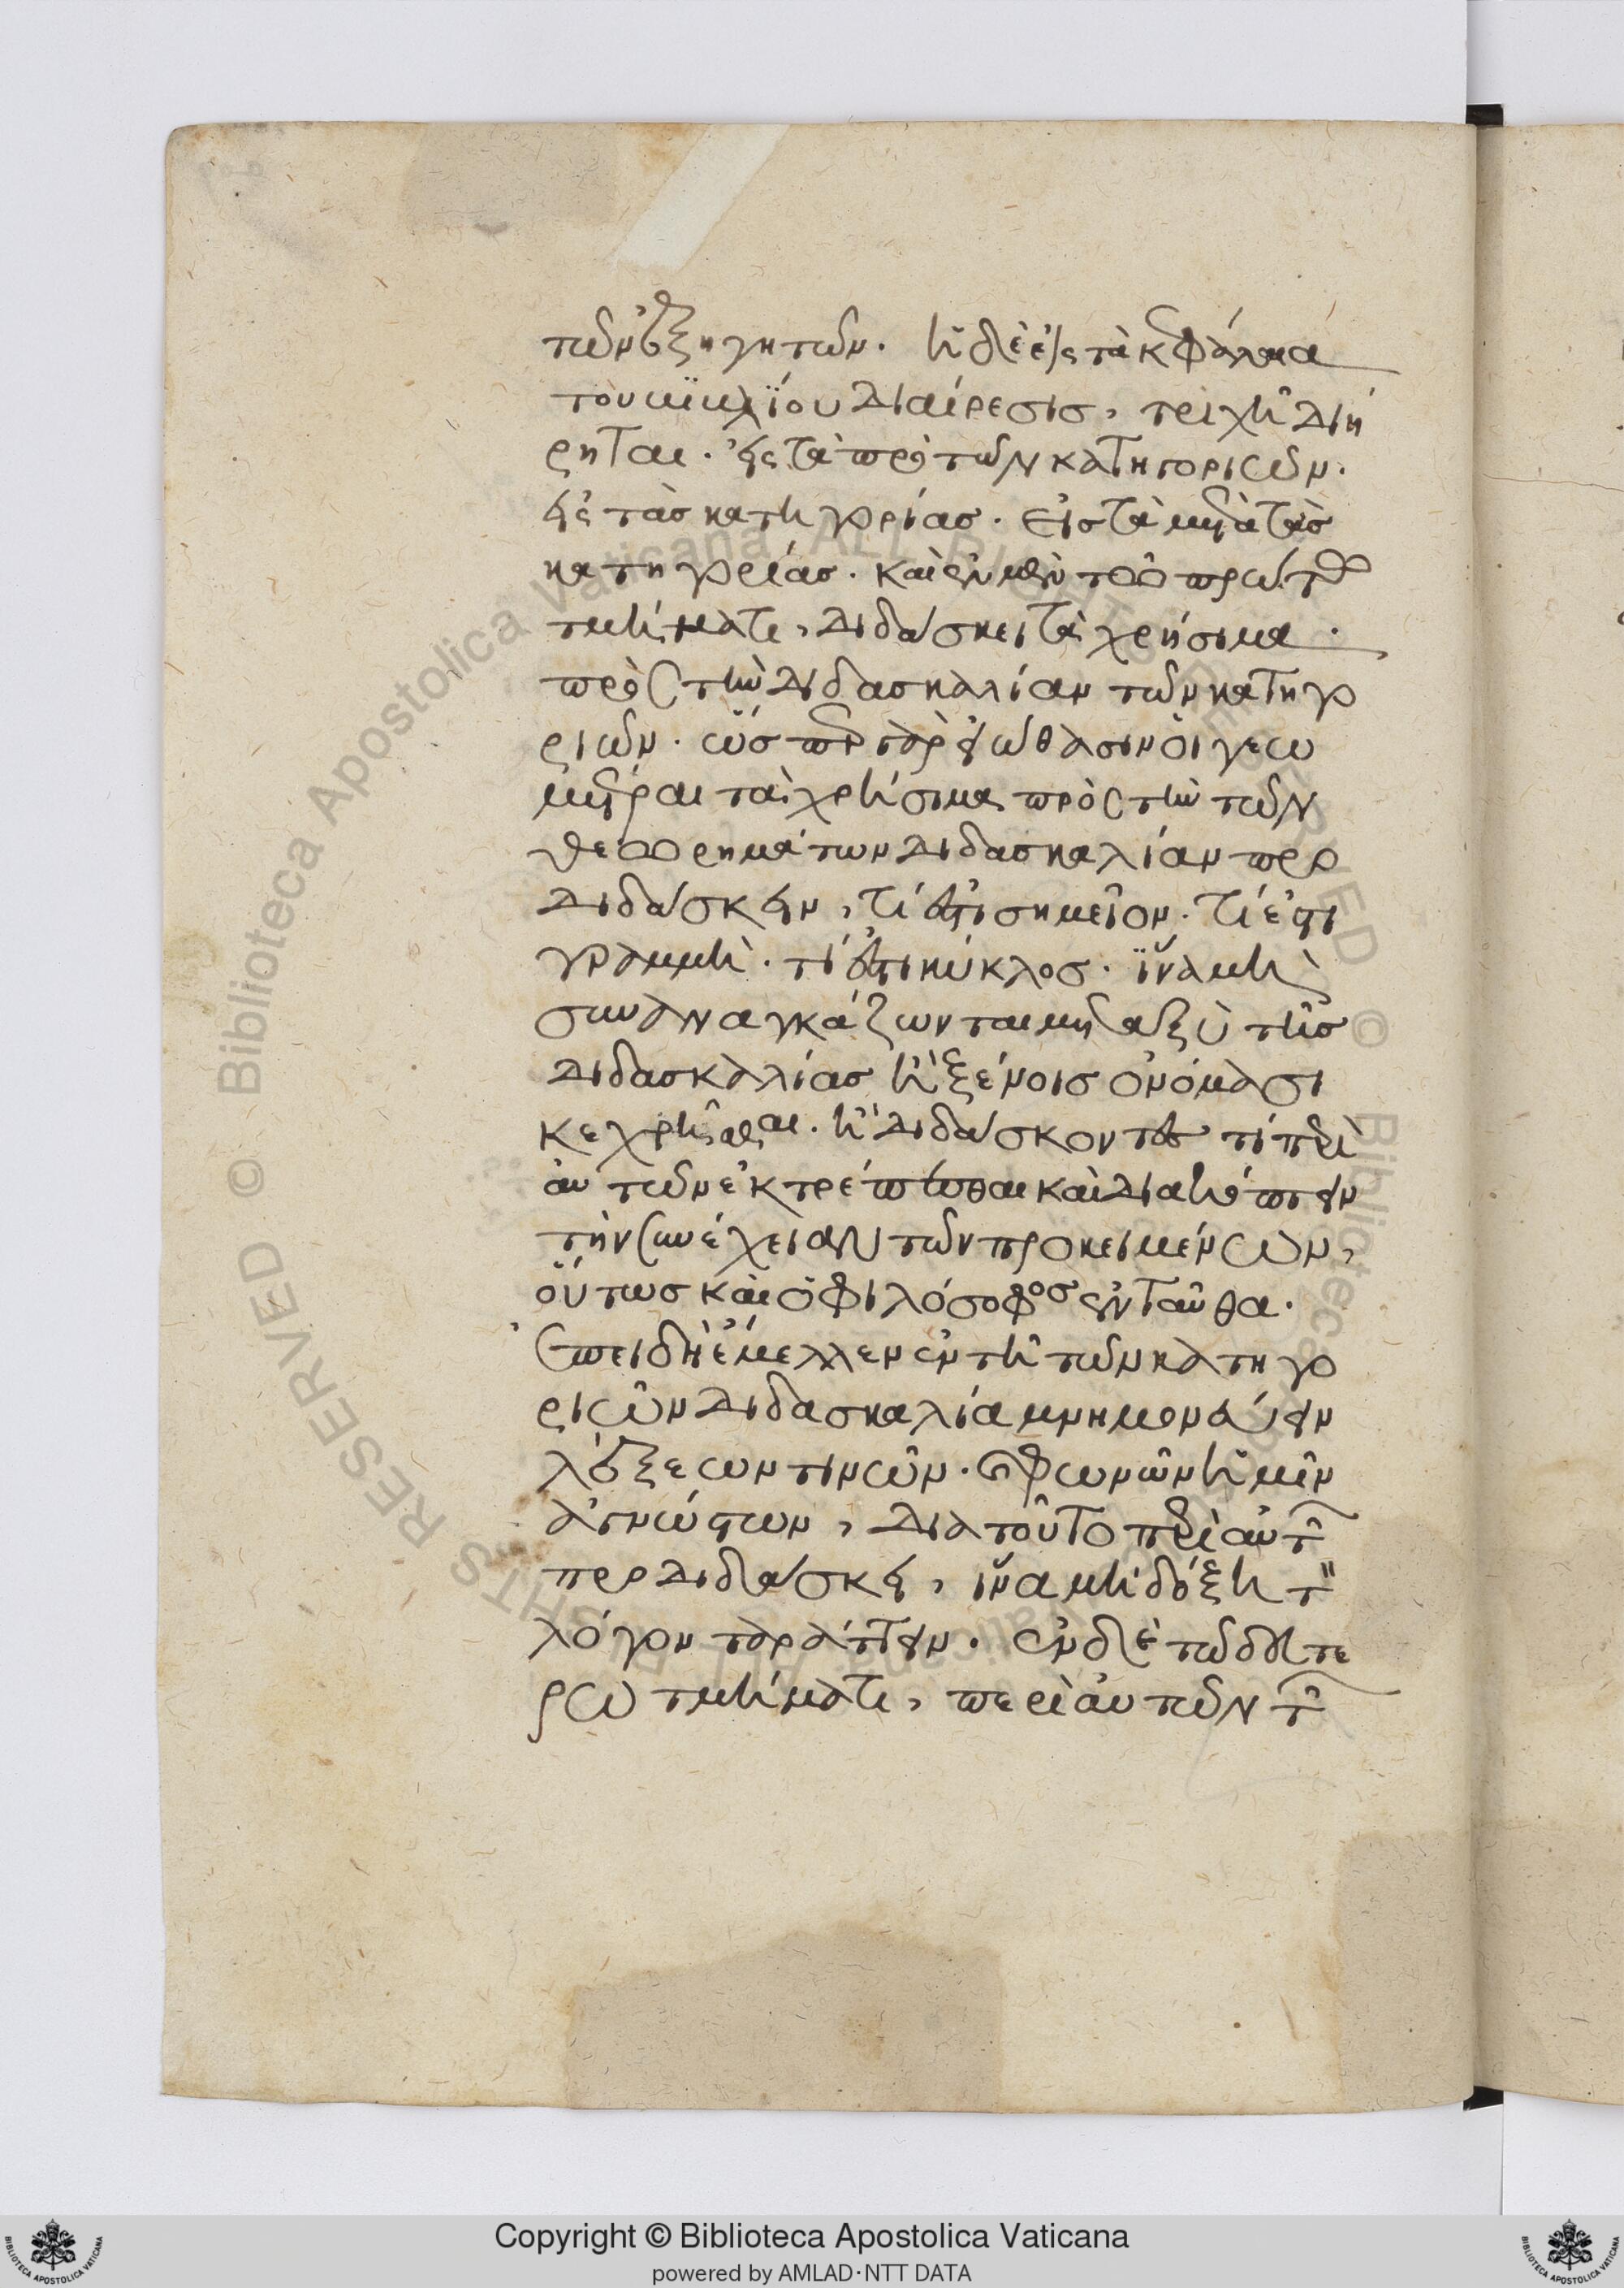 τῶν ἐξηγητῶν. ἡ δὲ εἰς τὰ κεφάλαια
τοῦ βιβλίου διαίρεσις, τριχῆ διή
ρηται. εἰς τὰ πρὸ τῶν κατηγοριῶν.
εἰς τὰς κατηγορίας. εἰς τὰ μετὰ τὰς
κατηγορίας. καὶ ἐν μὲν τῶ πρώτω
τμήματι, διδάσκει τὰ χρήσιμα.
πρὸς τὴν διδασκαλίαν τῶν κατηγο
ριῶν. ὥσπερ γὰρ εἰώθασιν οἱ γεω
μέτραι τὰ χρήσιμα πρὸς τὴν τῶν
θεωρημάτων διδασκαλίαν προ
διδάσκειν, τί ἐστι σημεῖον. τί ἐστι
γραμμὴ. τί ἐστι κύκλος. ἵνα μὴ
συναναγκάζωνται μεταξὺ τῆς
διδασκαλίας ἢ ξένοις ὀνόμασι
κεχρῆσθαι. ἢ διδάσκοντες τί περὶ
αὐτῶν ἐκτρέπεσθαι καὶ διακόπτειν
τὴν συνέχειαν τῶν προκειμένων,
οὕτως καὶ ὁ φιλόσοφος ἐνταῦθα.
ἐπειδὴ ἔμελλεν ἐν τῆ τῶν κατηγο
ριῶν διδασκαλία μνημονεύειν
λέξεων τινῶν. φωνῶν ἡμῖν
ἀγνώστων, διὰ τοῦτο περὶ αὐτῶν
προδιδάσκει, ἵνα μὴ δόξη τὸν
λόγον ταράττειν. ἐν δὲ τῶ δευτέ
ρω τμήματι, περὶ αὐτῶν τῶν
Copyright © Biblioteca Apostolica Vaticana
powered by AMLAD·NTT DATA